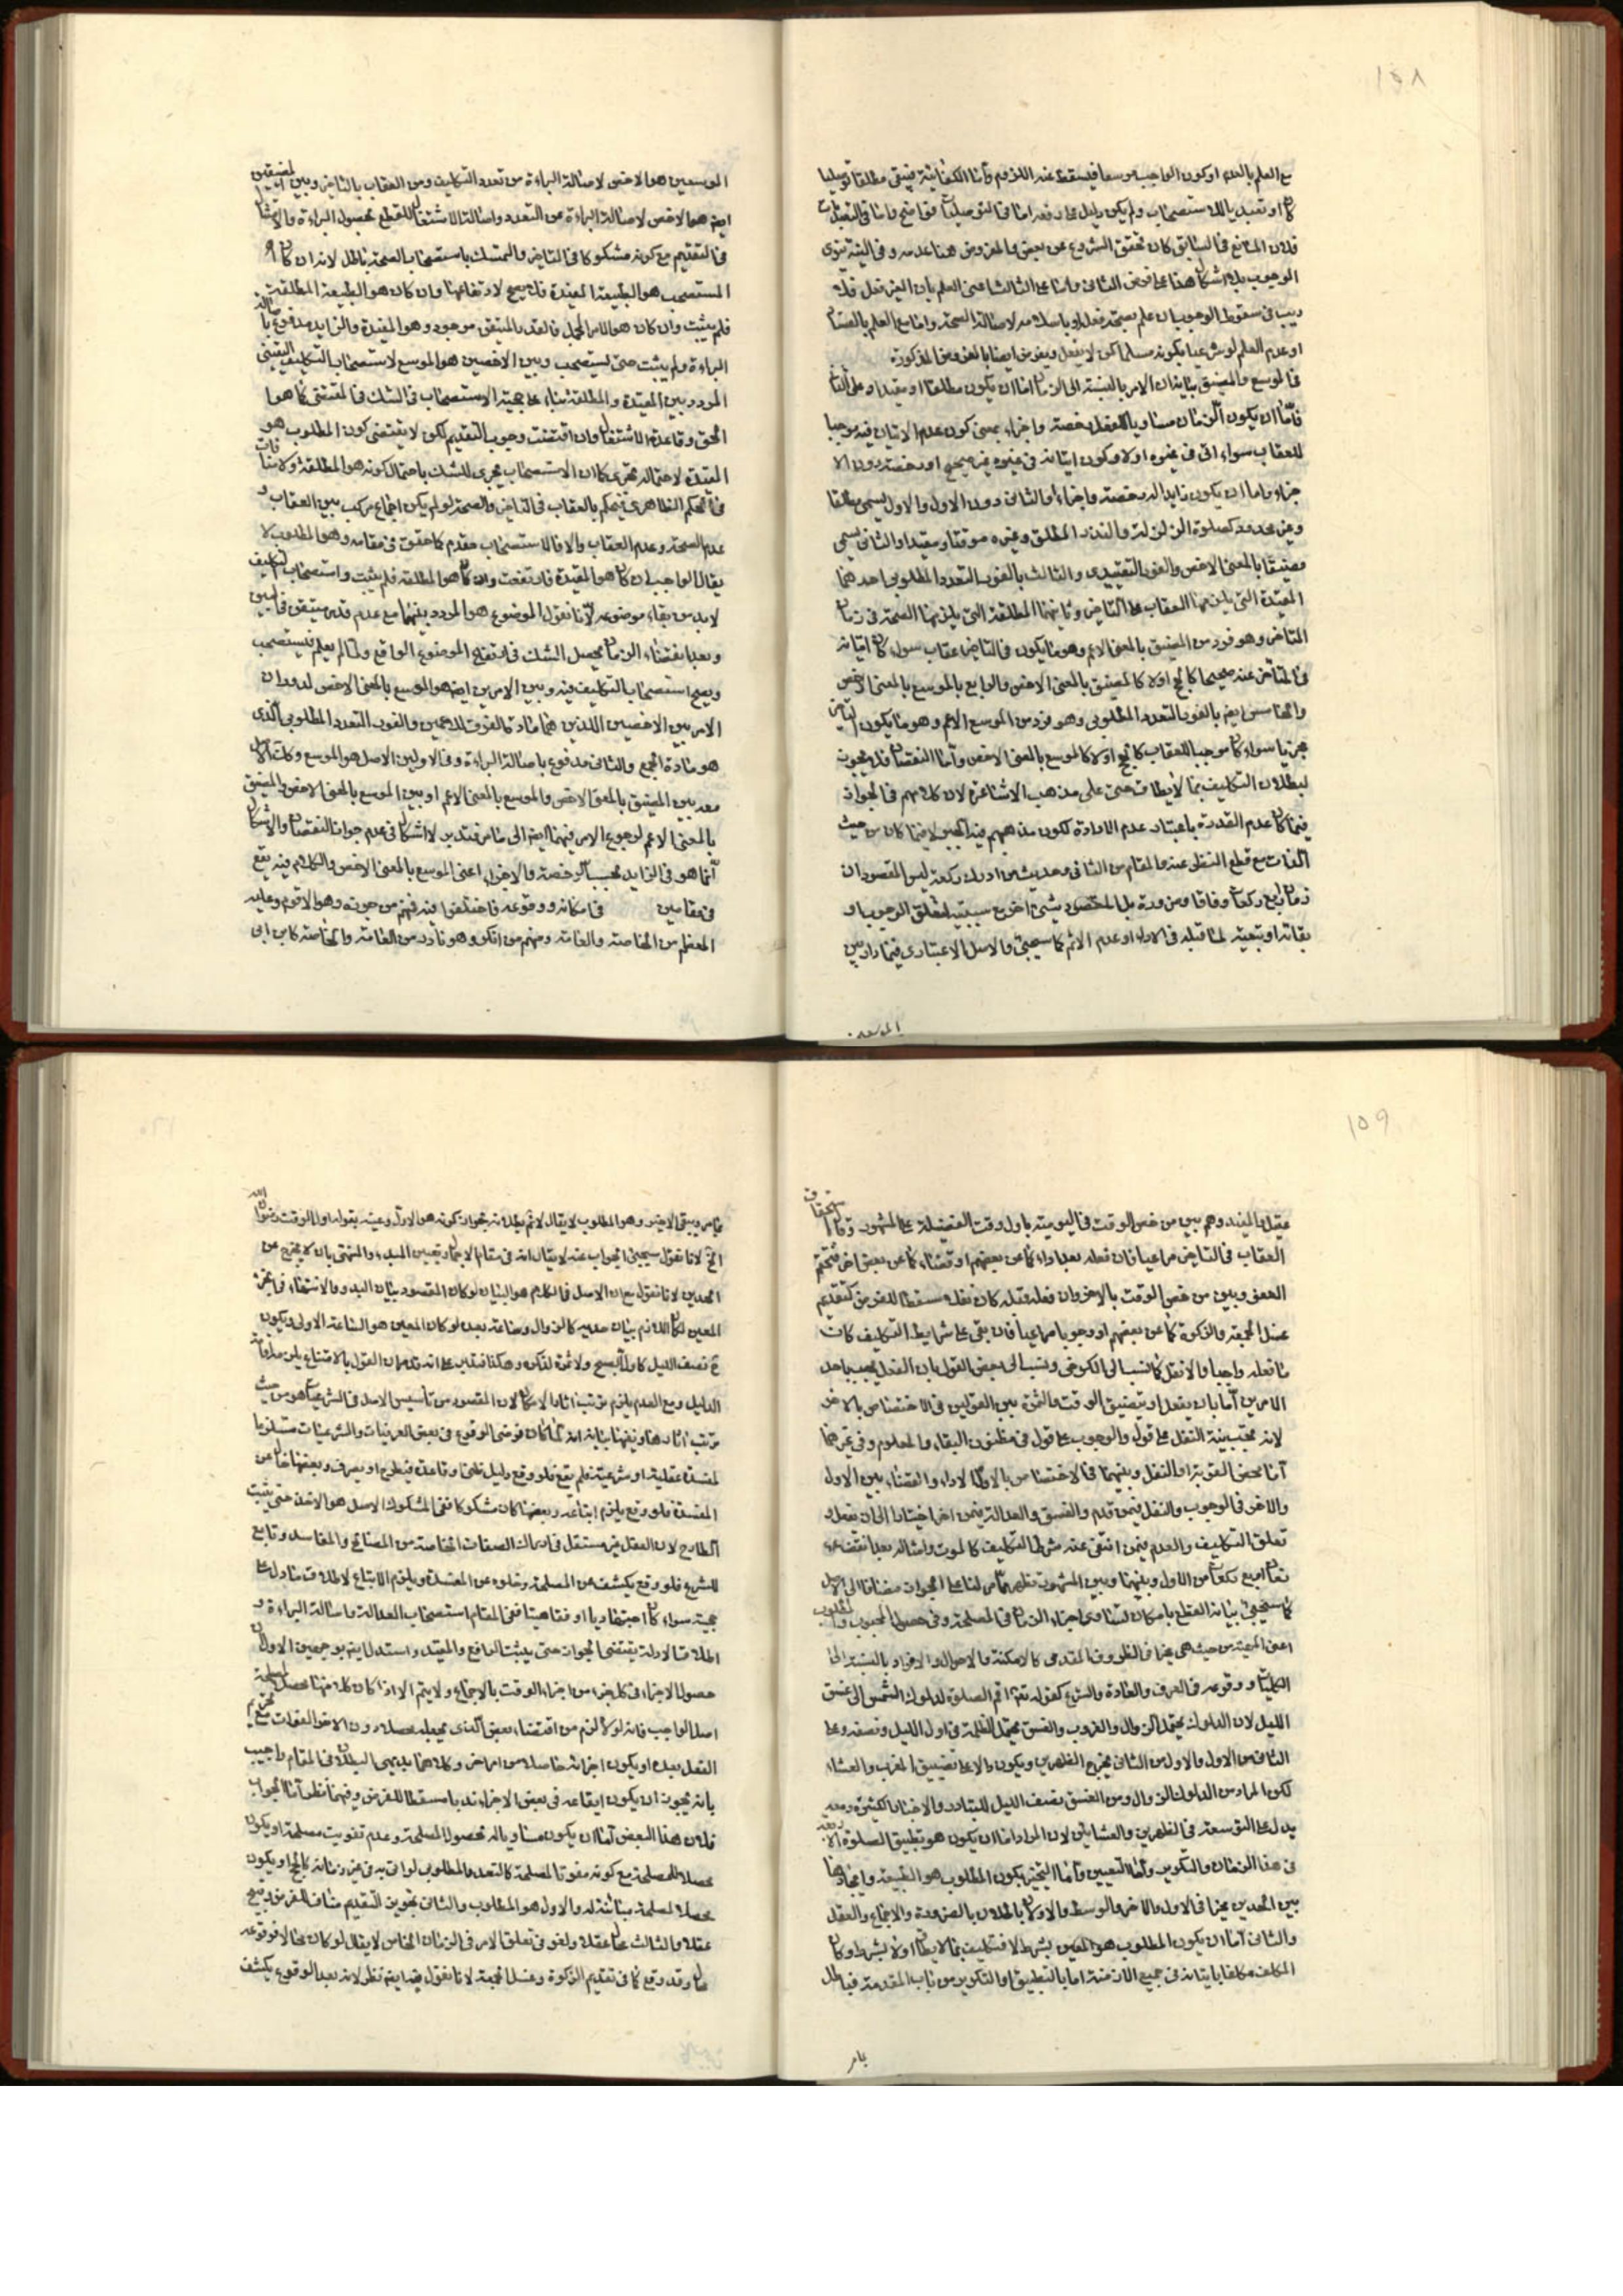 ١٥٨
مع العلم بالعدم او كون الواجب موسعا فيسقط عند اللازم واما الكفائية فيبقى مطلقا
المانع في السابق كان تحقق الشروع عن بعض والمفروض هنا عدمه وفي النية ينوي
الوجوب بلا اشكال هذا على فرض الثاني واما على الثالث اعني العلم بان الغير فعل فلا
ريب في سقوط الوجوب ان علم بصحة فعله او باسلامه لاصالة الصحة واما مع العلم بالفساد
او عدم العلم
في الموسع والمضيق بيانه ان الامر بالنسبة الى الزمان اما ان يكون مطلقا او مقيدا وعلى الثاني
فاما ان يكون الزمان مساويا للفعل رخصة واجزاء بمعنى كون عدم الاتيان فيه موجبا
للعقاب سواء اتى في غيره اولا وكون اتيانه في غيره غير صحيح او رخصة دون الا
جزاء واما ان يكون زايدا له رخصة واجزاء او الثاني دون الاول والاول يسمى مطلقا
وغير محدود كصلوة الزلزلة والنذر المطلق وغيره موقتا ومقيدا والثاني يسمى
مضيقا بالمعنى الاخص والفور التقييدي والثالث بالفور التعدد المطلوبي احدهما
المقيدة التي يلزمها العقاب على التاخير وثانيهما المطلقة التي يلزمها الصحة في زمان
التاخر وهو فرد من المضيق بالمعنى الاعم وهو ما يكون في التاخير عقاب سواء كان اتيانه
في المتاخر عنه صحيحا كالحج اولا كالمضيق بالمعنى الاخص والرابع بالموسع بالمعنى الاخص
والخامس ايضا بالفور التعدد المطلوبي وهو فرد من الموسع الاعم وهو ما يكون التاخير
مجزيا سواء كان موجبا للعقاب كالحج اولا كالموسع بالمعنى الاخص واما النقصان فلا يجوز
لبطلان التكليف بما لا يطاق حتى على مذهب الاشاعرة لان كلامهم في الجواز
فيما كان عدم القدرة باعتبار عدم الارادة لكون مذهبهم فيه الجبر لا فيما كان من حيث
الذات مع قطع النظر عنه والمقام من الثاني وحديث من ادرك ركعة ليس المقصود ان
زمان اربع ركعات وفاقا وضرورة بل المقصود شيء اخر مع سببيته لتعلق الوجوب او
بقائه او تبعية لما قبله في الاداء وعدم الاثم كما سيجيء والاصل الاعتباري فيما دار بين
الموسعين
الموسعين هو الاخص لاصالة البراءة من تعدد التكليف ومن العقاب بالتاخير وبين المضيقين
ايضا هو الاخص لاصالة البراءة عن التعدد واصالة الاشتغال للقطع بحصول البراءة والامتثال
في التقديم مع كونه مشكوكا في التاخير والتمسك باستصحاب الصحة باطل لانه ان كان
المستصحب هو الطبيعة المقيدة فلا يصح لارتفاعها وان كان هو الطبيعة المطلقة
فلم يثبت وان كان هو الامر المجمل فالقدر المتيقن موجود وهو المقيدة والزايد مدفوع باصالة
البراءة ولم يثبت حتى يستصحب وبين الاخصين هو الموسع لاستصحاب التكليف اليقيني
المردد بين المقيدة والمطلقة بناء على حجية الاستصحاب في الشك في المقتضي كما هو
الحق وقاعدة الاشتغال وان اقتضت وجوب التقديم لكن لا يقتضي كون المطلوب هو
المقيدة لاحتماله تجري كما ان الاستصحاب يجري للشك باحتمال كونه هو المطلقة ولا منافات
في الحكم الظاهري فيحكم بالعقاب في التاخير والصحة لو لم يكن اجماع مركب بين العقاب و
عدم الصحة وعدم العقاب والا فالاستصحاب مقدم كما حقق في مقامه وهو المطلوب لا
يقال الواجب ان كان هو المقيدة فارتفعت وان كان هو المطلقة فلم يثبت واستصحاب التكليف
لابد من بقاء موضوعه لانا نقول الموضوع هو المردد بينهما مع عدم قدر متيقن في البين
وبعد انقضاء الزمان يحصل الشك في ارتفاع الموضوع الواقع ولما لم يعلم فيستصحب
ويصح استصحاب التكليف فيه وبين الامرين ايضا هو الموسع بالمعنى الاخص لدوران
الامر بين الاخصين اللذين هما مادة الفرق للاعمين والفور التعدد المطلوبي الذي
هو مادة الجمع والثاني مدفوع باصالة البراءة وفي الاولين الاصل هو الموسع وكذا الامر
معه بين المضيق بالمعنى الاخص والموسع بالمعنى الاعم او بين الموسع بالمعنى الاخص والمضيق
بالمعنى الاعم لرجوع الامر فيهما ايضا الى ما مر فتدبر لا اشكال في عدم جواز النقصان والاشكال
انما هو في الزايد بحسب الرخصة والاجزاء اعني الموسع بالمعنى الاخص والكلام فيه يقع
في مقامين في امكانه ووقوعه فاختلفوا فيه فمنهم من جوزه وهو الاقوم وعليه
المعظم من الخاصة والعامة ومنهم من انكره وهو نادر من العامة والخاصة كابن ابي
١٥٩
عقيل والمفيد وهم بين من خص الوقت في اليومية باول وقت الفضيلة على المشهور وقال استحقاق
العقاب في التاخير مراعيا فان فعله بعد اداء كما عن بعضهم او قضاء كما عن بعض اخر فيتحتم
العفو وبين من خص الوقت بالاخر وان فعله قبله كان نفلا مسقطا للفرض كتقديم
غسل الجمعة والزكوة كما عن بعضهم او وجوبا مراعيا فان بقي على شرايط التكليف كان
ما فعله واجبا والا نفل كما نسب الى الكرخي ونسب الى بعض القول بان الفعل يجب باحد
الامرين اما بان يفعل او بتضييق الوقت والثمرة بين القولين في الاختصاص بالاخر
لانه يجب بنية النفل على قول والوجوب على قول في مظنون البقاء والمعلوم وفي غيرهما
اما بحض القربة او النفل وبينهما في الاختصاص بالاول الاداء والقضاء بين الاول
والاخر في الوجوب والنفل فيمن قدم والفسق والعدالة فيمن اخر اختيارا الى ان تعذر
تعلق التكليف والعدم فيمن انتفى عنه شرط التكليف كالموت وامثاله بعد انقضاء
زمان اربع ركعات من الاول وبينهما وبين المشهور تظهر مما مر لنا على الجواز مضافا الى الاصل
كما سيجيء بيانه القطع بامكان تساوي اجزاء الزمان في المصلحة وفي حصول المحبوب والمطلوب
الكليات ووقوعه في العرف والعادة والشرع كقوله تعالى اقم الصلوة لدلوك الشمس الى غسق
الليل لان الدلوك يحتمل الزوال والغروب والغسق يحتمل الظلمة في اول الليل ونصفه وعلى
الثاني من الاول والاول من الثاني يخرج الظهرين ويكون دالا على تضييق المغرب والعشاء
لكن المراد من الدلوك الزوال ومن الغسق نصف الليل للتبادر والاخبار الكثيرة ومعه
يدل على التوسعة في الظهرين والعشائين لان المراد اما ان يكون هو تطبيق الصلوة
في هذا الزمان والتكرير واما التعيين واما التخيير بكون المطلوب هو الطبيعة وايجادها
بين الحدين مخيرا في الاول والاخر والوسط والاولان باطلان بالضرورة والاجماع والعقل
والثاني اما ان يكون المطلوب هو المعين بشرط لا فتكليف بما لا يطاق اولا بشرط وكان
المكلف مكلفا باتيانه في جميع الازمنة اما بالتطبيق او التكرير من باب المقدمة فباطل
بامر
بما مر ويبقى الاخير وهو المطلوب لا يقال لا نم بطلانه بجواز كونه هو الاول وعينه بقوله اول الوقت رضوان الله
الخ لانا نقول سيجيء الجواب عنه لا يقال انه في مقام الاجمال وتعيين المبدء والمنتهى بان لا يخرج عن
الحدين لانا نقول مع ان الاصل في الكلام هو البيان لو كان المقصود بيان البدو والانتهاء في غير
المعين لكان اللازم بيان حديه كالزوال وساعة بعد لو كان المعين هو الساعة الاولى ويكون
ذكر نصف الليل كاول الصبح ولا ثمرة لذكره وهكذا
الدليل ومع العدم يلزم ترتب اثار الامكان لان المقصود من تأسيس الاصل في الشرعيات هو من حيث
ترتب اثارها ونفيها بيانه انه لما كان فرض الوقوع في بعض العرفيات والشرعيات مستلزما
لمفسدة عقلية او شرعية فلم يقع فلو وقع دليل ظني او قاعدة فيطرح او يصرف وبعضها خال عن
المفسدة فلو وقع يلزم اتباعه وبعضها كان مشكوكا ففي المشكوك الاصل هو الاخذ حتى يثبت
الطارح لان العقل غير مستقل في ادراك الصفات الخاصة من المصالح والمفاسد وتابع
للشرع فلو وقع يكشف عن المصلحة وخلوه عن المفسدة ويلزم الاتباع لاطلاق ما دل على
حجيته سواء كان اجتهاديا او فقاهيا ففي المقام استصحاب العدالة واصالة البراءة و
اطلاق الادلة يقتضي الجواز حتى يثبت الدافع والمقيد واستدل ايضا بوجهين الاول ان
حصول الاجزاء في كل جزء من اجزاء الوقت بالاجماع ولا يتم الا اذا كان كل منها محصل لمصلحة
اصل الواجب فانه لولا لزم من اقتضاء بعض الذي يجعله محصلا دون الاخر الفوات
الفعل بعده او يكون اجزائه حاصلا من امر اخر وكلاهما بديهي البطلان في المقام واجيب
بانه يجوز ان يكون ايقاعه في بعض الاجزاء ندبا مسقطا للفرض وفيهما نظر اما الجواب
فلان هذا البعض اما ان يكون مساويا له لحصول المصلحة وعدم تفويت مصلحة او يكون
محصلا للمصلحة مع كونه مفوتا لمصلحة كالتعدد المطلوبي لو اتي به في غير زمانه كالحج او يكون
محصلا لمصلحة مباينة له والاول هو المطلوب والثاني تجويز التقديم مناف للفرض
عقلا والثالث محال عقلا ولغو في تعلق الامر في الزمان الخاص لا يقال لو كان محالا فوقوعه
محال وقد وقع كما في تقديم الزكوة وغسل الجمعة لانا نقول فيه ايضا نظر لانه بعد الوقوع يكشف